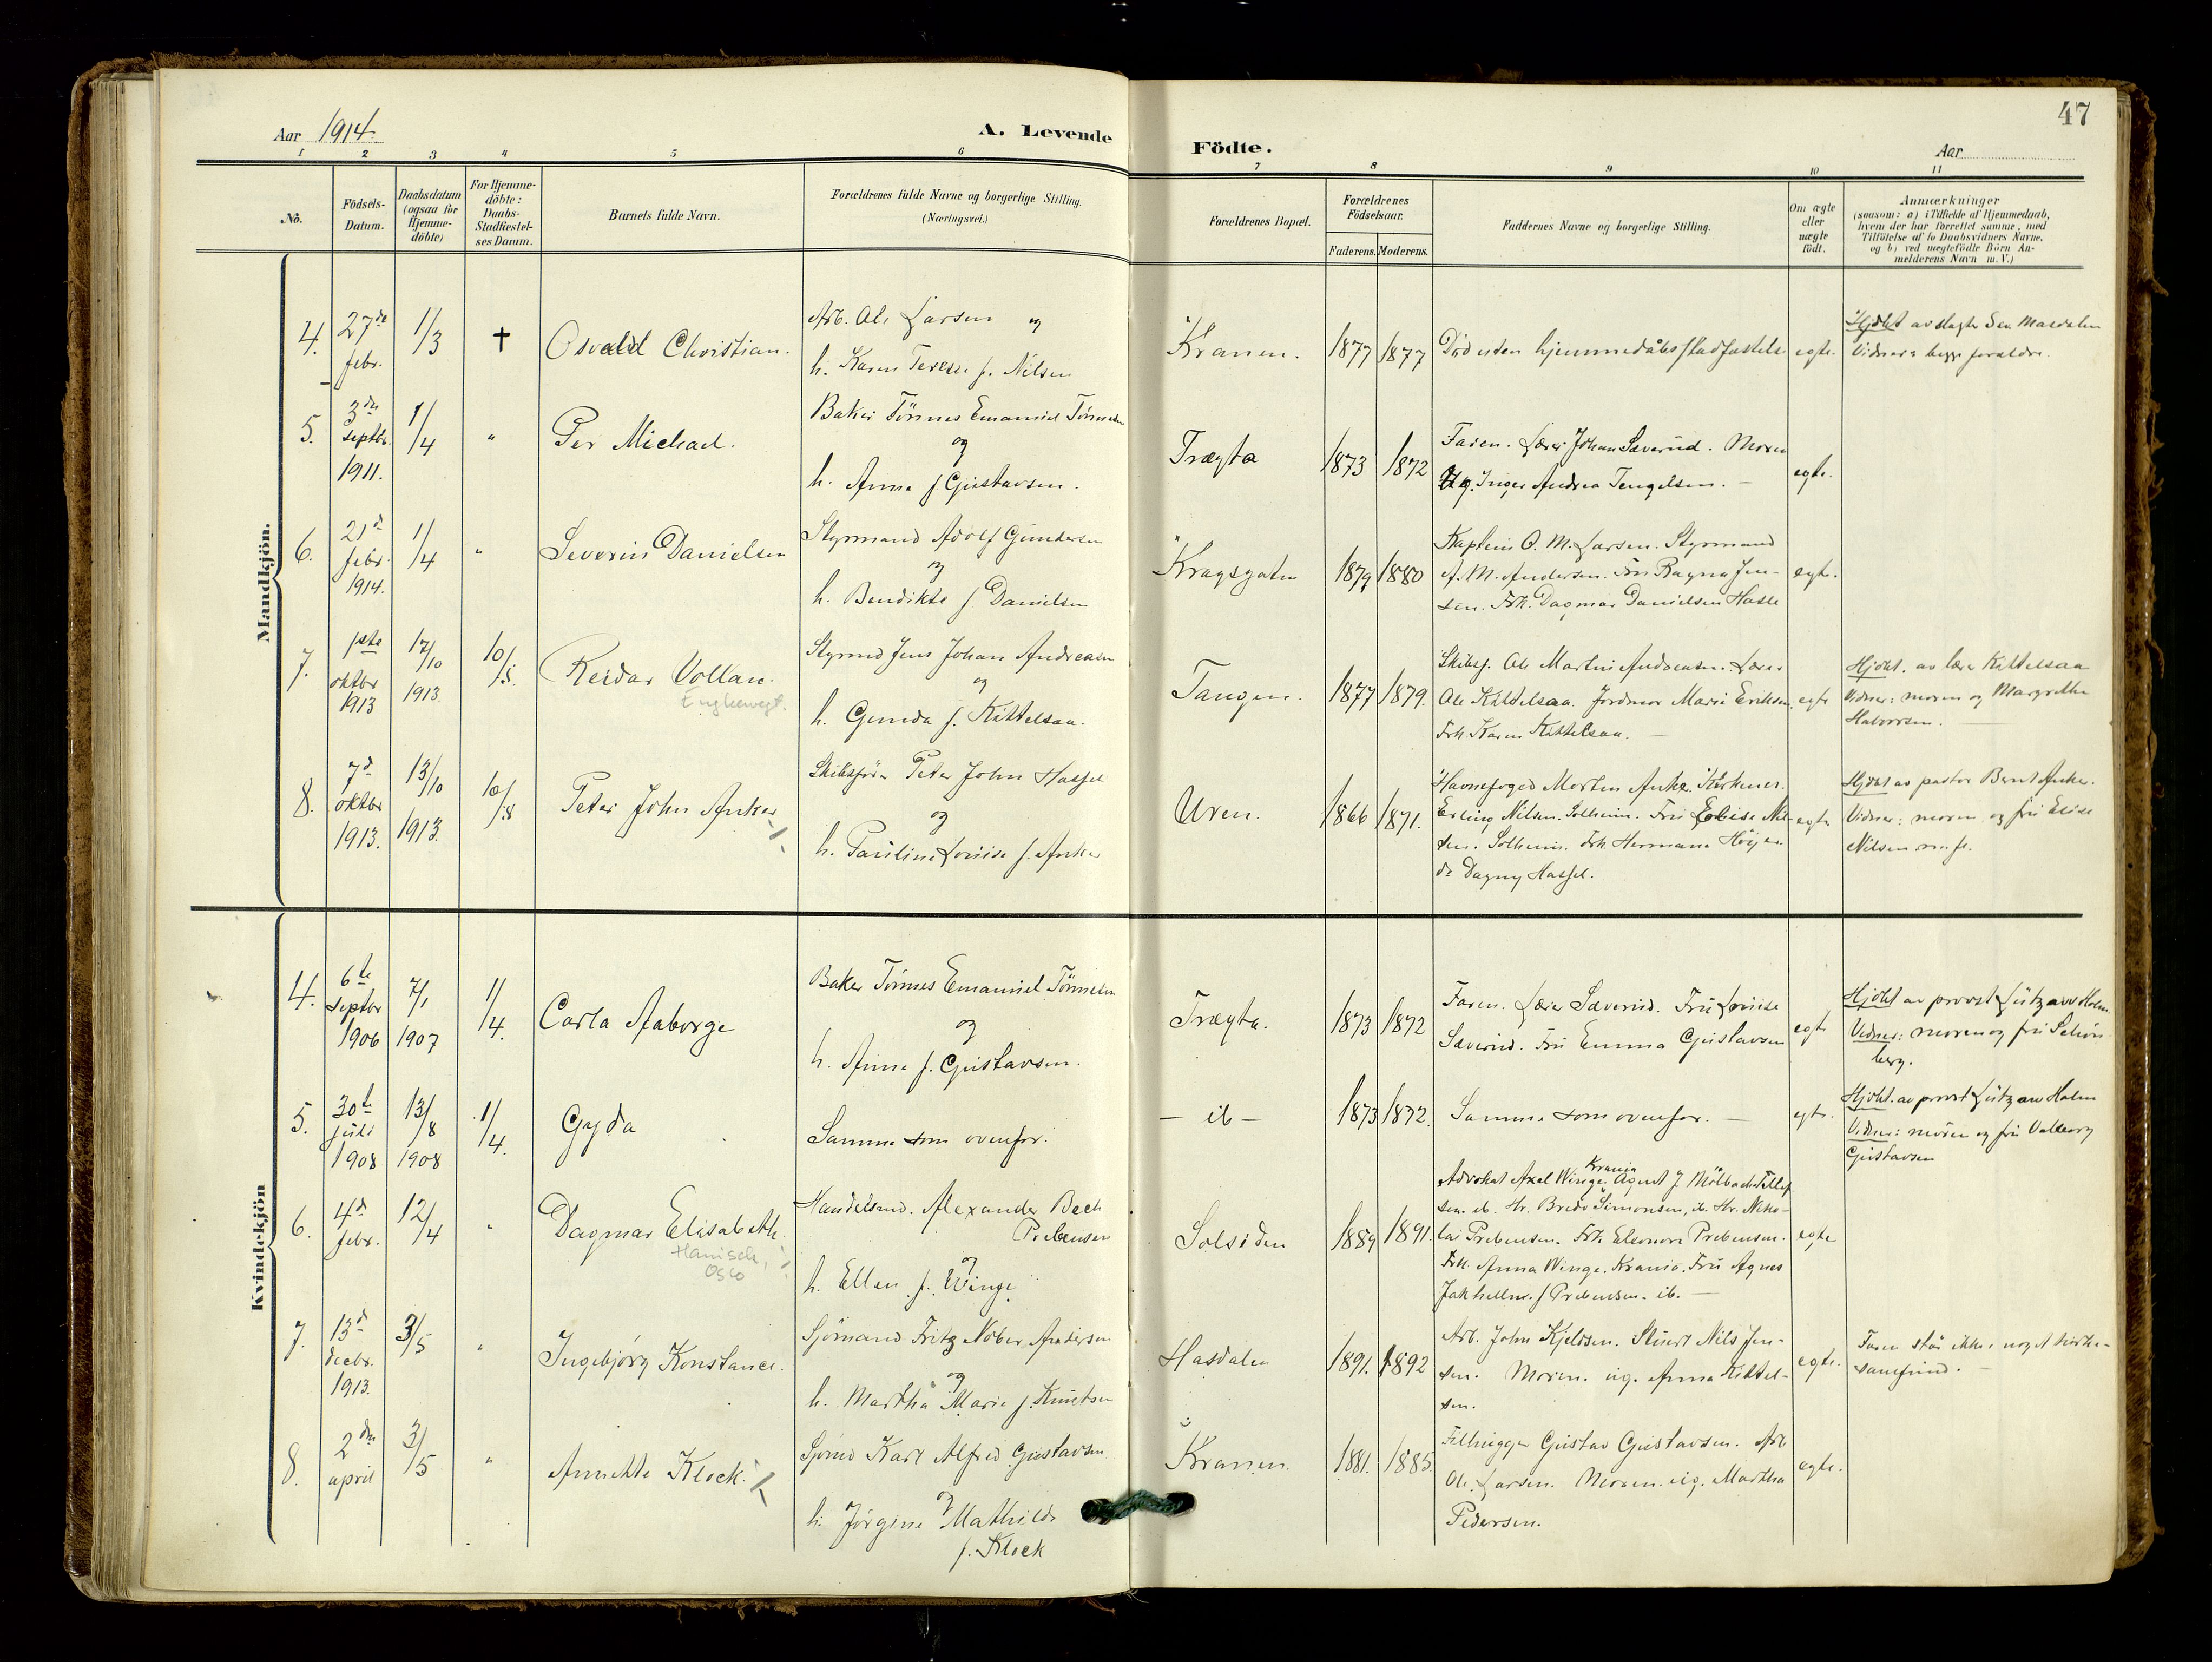 47
Aar 1914. A. Levende Födte. Aar
1 2 3 4 5 6 7 8 9 10 11
No. Födsels-Datum. Daabsdatum (ogsaa for Hjemmedöbte) For Hjemmedöbte: Daabs-Stadfæstelses Datum. Barnets fulde Navn. Forældrenes fulde Navne og borgerlige Stilling. (Næringsvei.) Forældrenes Bopæl. Forældrenes Födselsaar. Faderens. Moderens. Faddernes Navne og borgerlige Stilling. Om ægte eller uægte födt. Anmærkninger (saasom: a) i Tilfælde af Hjemmedaab, hvem der har forrettet samme, med Tilföielse af to Daabsvidners Navne, og b) ved uægtefödte Börn Anmelderens Navn m. V.)
Mandkjön.
4. 27de febr. 1/3 † Osvald Christian.
Arb. Ole Larsen og
h. Karen Terese f. Nilsen
Kranen. 1877 1877 Död uden hjemmedåbsstadfæstelse egte.
Hjdbt av slagter Sev. Mardalen
Vidner: begge forældre.
5. 3die septbr. 1911. 1/4 " Per Michael.
Baker Tönnes Emanuel Tönnesen
og
h. Anna f Gustavsen.
Trægta 1873 1872
Faren. Lærer Johan Sæverud. Moren
Ug. Inger Andrea Tengelsen. —
egte.
6. 21d febr. 1914. 1/4 " Severin Danielsen
Styrmand Adolf Gundersen
og
h. Bendikte f Danielsen
Kragsgaten 1879 1880
Kaptein O. M. Larsen. Styrmand
A. M. Andersen. Fru Ragna Jen-
sen. Frk. Dagmar Danielsen Hasle
egte.
7. 1ste oktbr 1913 17/10 1913. 10/5. Reidar Vollan.
Styrmd Jens Johan Andreasen
og
h. Gunda f. Kittelsaa.
Tangen. 1877 1879.
Skibsf. Ole Martin Andreasen. Lærer
Ole Kittelsaa. Jordmor Marie Eriksen.
Frk. Karen Kittelsaa. —
egte
Hjdbt. av lærer Kittelsaa
Vidner: moren og Margrethe
Halvorsen. —
8. 7d oktbr 1913. 13/10 1913. 10/8 Peter John Anker
Skibsförer Peter John Hassel
og
h. Pauline Louise f. Anker
Uren. 1866 1871.
Havnefoged Morten Anker. Kirkenes.
Erling Nilsen. Solheim. Fru Elise Nil-
sen. Solheim. Frk Hermana Höyer
do Dagny Hassel.
egte
Hjdbt av pastor Bernt Anker.
Vidner: moren og fru Elise
Nilsen
Kvindekjön
4. 6te septbr 1906 7/1 1907 1/4. Carla Aaborge
Baker Tönnes Emanuel Tönnesen
og
h. Anna f. Gustavsen.
Trægta. 1873 1872
Faren. Lærer Sæverud. Fru Louise
Sæverud. Fru Emma Gustavsen
egte
Hjdbt av provst Lützow Holm.
Vidner: moren og fru Schön
berg.
5. 30te juli 1908 13/8 1908 1/4. Gyda
Samme som ovenfor.
— ib — 1873 1872. Samme som ovenfor. — egte.
Hjdbt. av provst Lützow Holm
Vidner: moren og fru Valborg
Gustavsen
6. 4d febr. 12/4 " Dagmar Elisabeth.
Hanisch,
Oslo
Handelsmd. Alexander Bech
Prebensen
og
h. Ellen f. Winge
Solsiden 1889 1891.
Krania
Advokat Axel Winge. Agent J Mölbach Tellef
sen. ib. Hr. Bredo Simonsen, ib. Hr. Niko-
lai Prebensen. Frk. Eleonore Prebensen.
Frk. Anna Winge. Krania. Fru Agnes
Jakhelln. f Prebensen. ib. —
egte
7. 13d decbr. 1913. 3/5 " Ingebjörg Konstance.
Sjömand Fritz Nober Andersen
og
h. Martha Marie f. Knutsen
Hasdalen 1891. 1892
Arb. John Kjeldsen. Stuert Nils Jen-
sen. Moren. ug. Anna Kittel-
sen.
egte.
Faren står ikke i noget kirke-
samfund. —
8. 2den april 3/5 " Annette Klock.
Sjömd Karl Alfred Gustavsen
og
h. Jörgine Mathilde
f. Klock
Kranen. 1881. 1885.
Filhugger Gustav Gustavsen. Arb
Ole Larsen. Moren. ug. Martha
Pedersen.
egte.